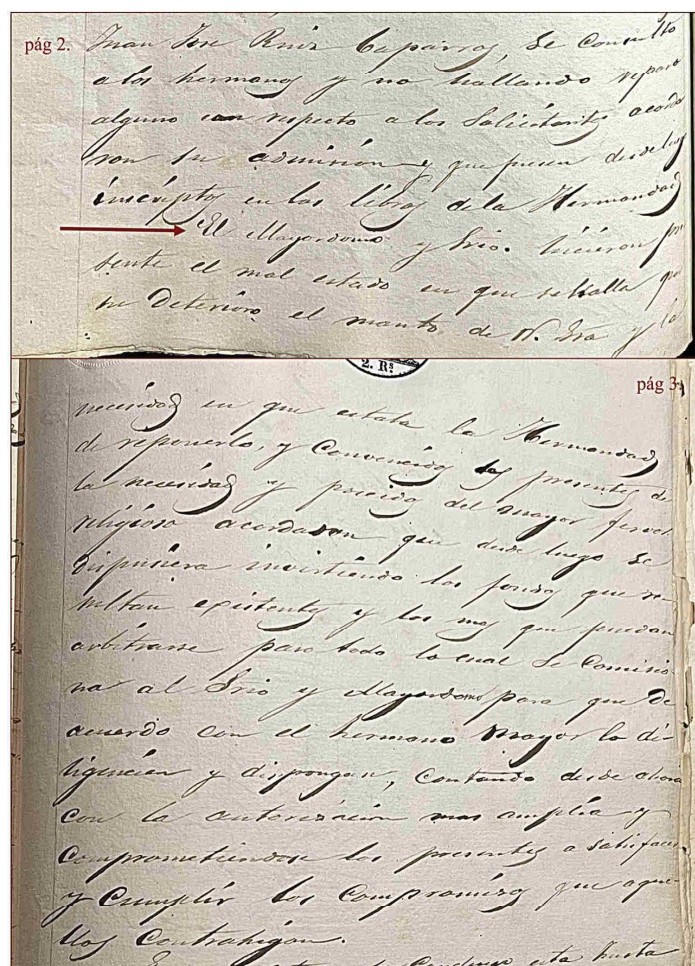 pág 2.
Juan Jose Ruiz Caparros, se consulto
a los hermanos y no hallando reparo
alguno con respecto a los Solicitantes acorda
ron su admision y que fuesen desde luego
inscriptos en los libros de la Hermandad
El Mayordomo y Srio. hicieron pre
sente el mal estado en que se halla por
su deterioro el manto de N. Sra y la
2. Rs
pág 3.
necesidad en que estaba la Hermandad
de reponerlo, y convencidos los presentes de
la necesidad y poseidos del mayor fervor
religioso acordaron que desde luego se
dispusiera invirtiendo los fondos que re
sultan existentes y los mas que puedan
arbitrarse para todo lo cual se comisio
na al Srio y Mayordomo para que de
acuerdo con el hermano mayor lo di-
ligencien y dispongan, contando desde ahora
con la autorizacion mas amplia y
comprometiendose los presentes a satisfacer
y cumplir los compromisos que aque-
llos contrahigan.
esta Junta